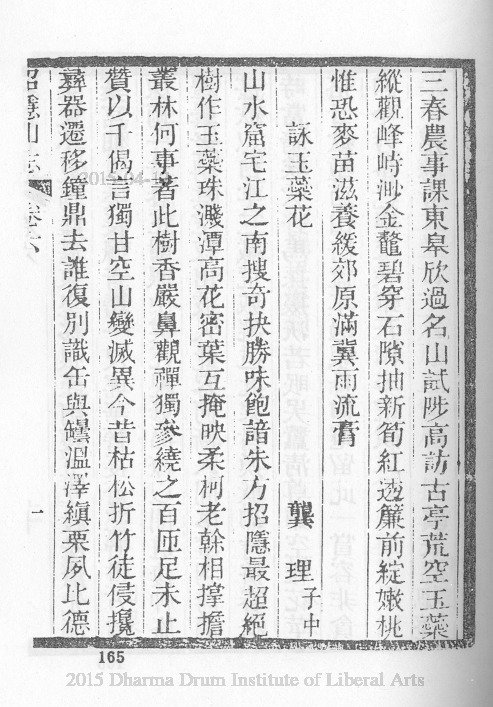 三春農事課東皋欣過名山試陟高訪古亭荒空玉蘂
縱觀峰峙渺金鼇碧穿石隙抽新筍紅透簾前綻嫩桃
惟恐麥苗滋養緩郊原滿冀雨流膏
詠玉蘂花 龔 理 子中
山水窟宅江之南搜奇抉勝味飽諳朱方招隱最超絕
樹作玉蘂珠濺潭高花密葉互掩映柔柯老榦相撐擔
叢林何事著此樹香嚴鼻觀禪獨參繞之百匝足未止
贊以千偈言獨甘空山變滅異今昔枯松折竹徒侵攙
彝器遷移鐘鼎去誰復別識缶與罎溫澤縝栗夙比德
招隱山志 卷六 一
165
2015-04-1
2015 Dharma Drum Institute of Liberal Arts